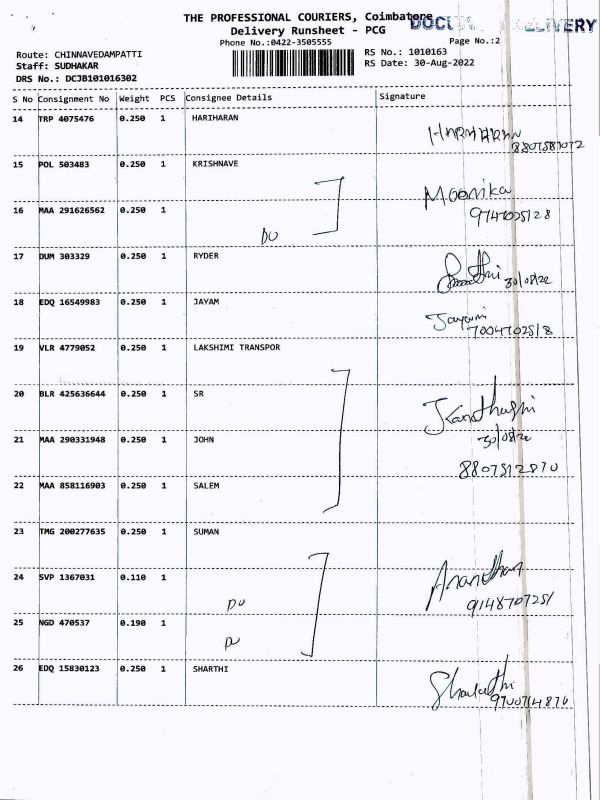 THE PROFESSIONAL COURIERS, Coimbatore
Delivery Runsheet - PCG
DELIVERY
Phone No.:0422-3505555
Page No.:2
Route: CHINNAVEDAMPATTI
Staff: SUDHAKAR
DRS No.: DCJB101016302
RS No.: 1010163
RS Date: 30-Aug-2022
S No Consignment No Weight PCS Consignee Details Signature
14 TRP 4075476 0.250 1 HARIHARAN
HARIHARAN
15 POL 503483 0.250 1 KRISHNAVE
Moonika
16 MAA 291626562 0.250 1
DU
17 DUM 303329 0.250 1 RYDER
30/08/22
18 EDQ 16549983 0.250 1 JAYAM
19 VLR 4779052 0.250 1 LAKSHIMI TRANSPOR
20 BLR 425636644 0.250 1 SR
21 MAA 290331948 0.250 1 JOHN
30/08/22
8807512870
22 MAA 858116903 0.250 1 SALEM
23 TMG 200277635 0.250 1 SUMAN
24 SVP 1367031 0.110 1
DU
Ananthan
9148707251
25 NGD 470537 0.190 1
DU
26 EDQ 15830123 0.250 1 SHARTHI